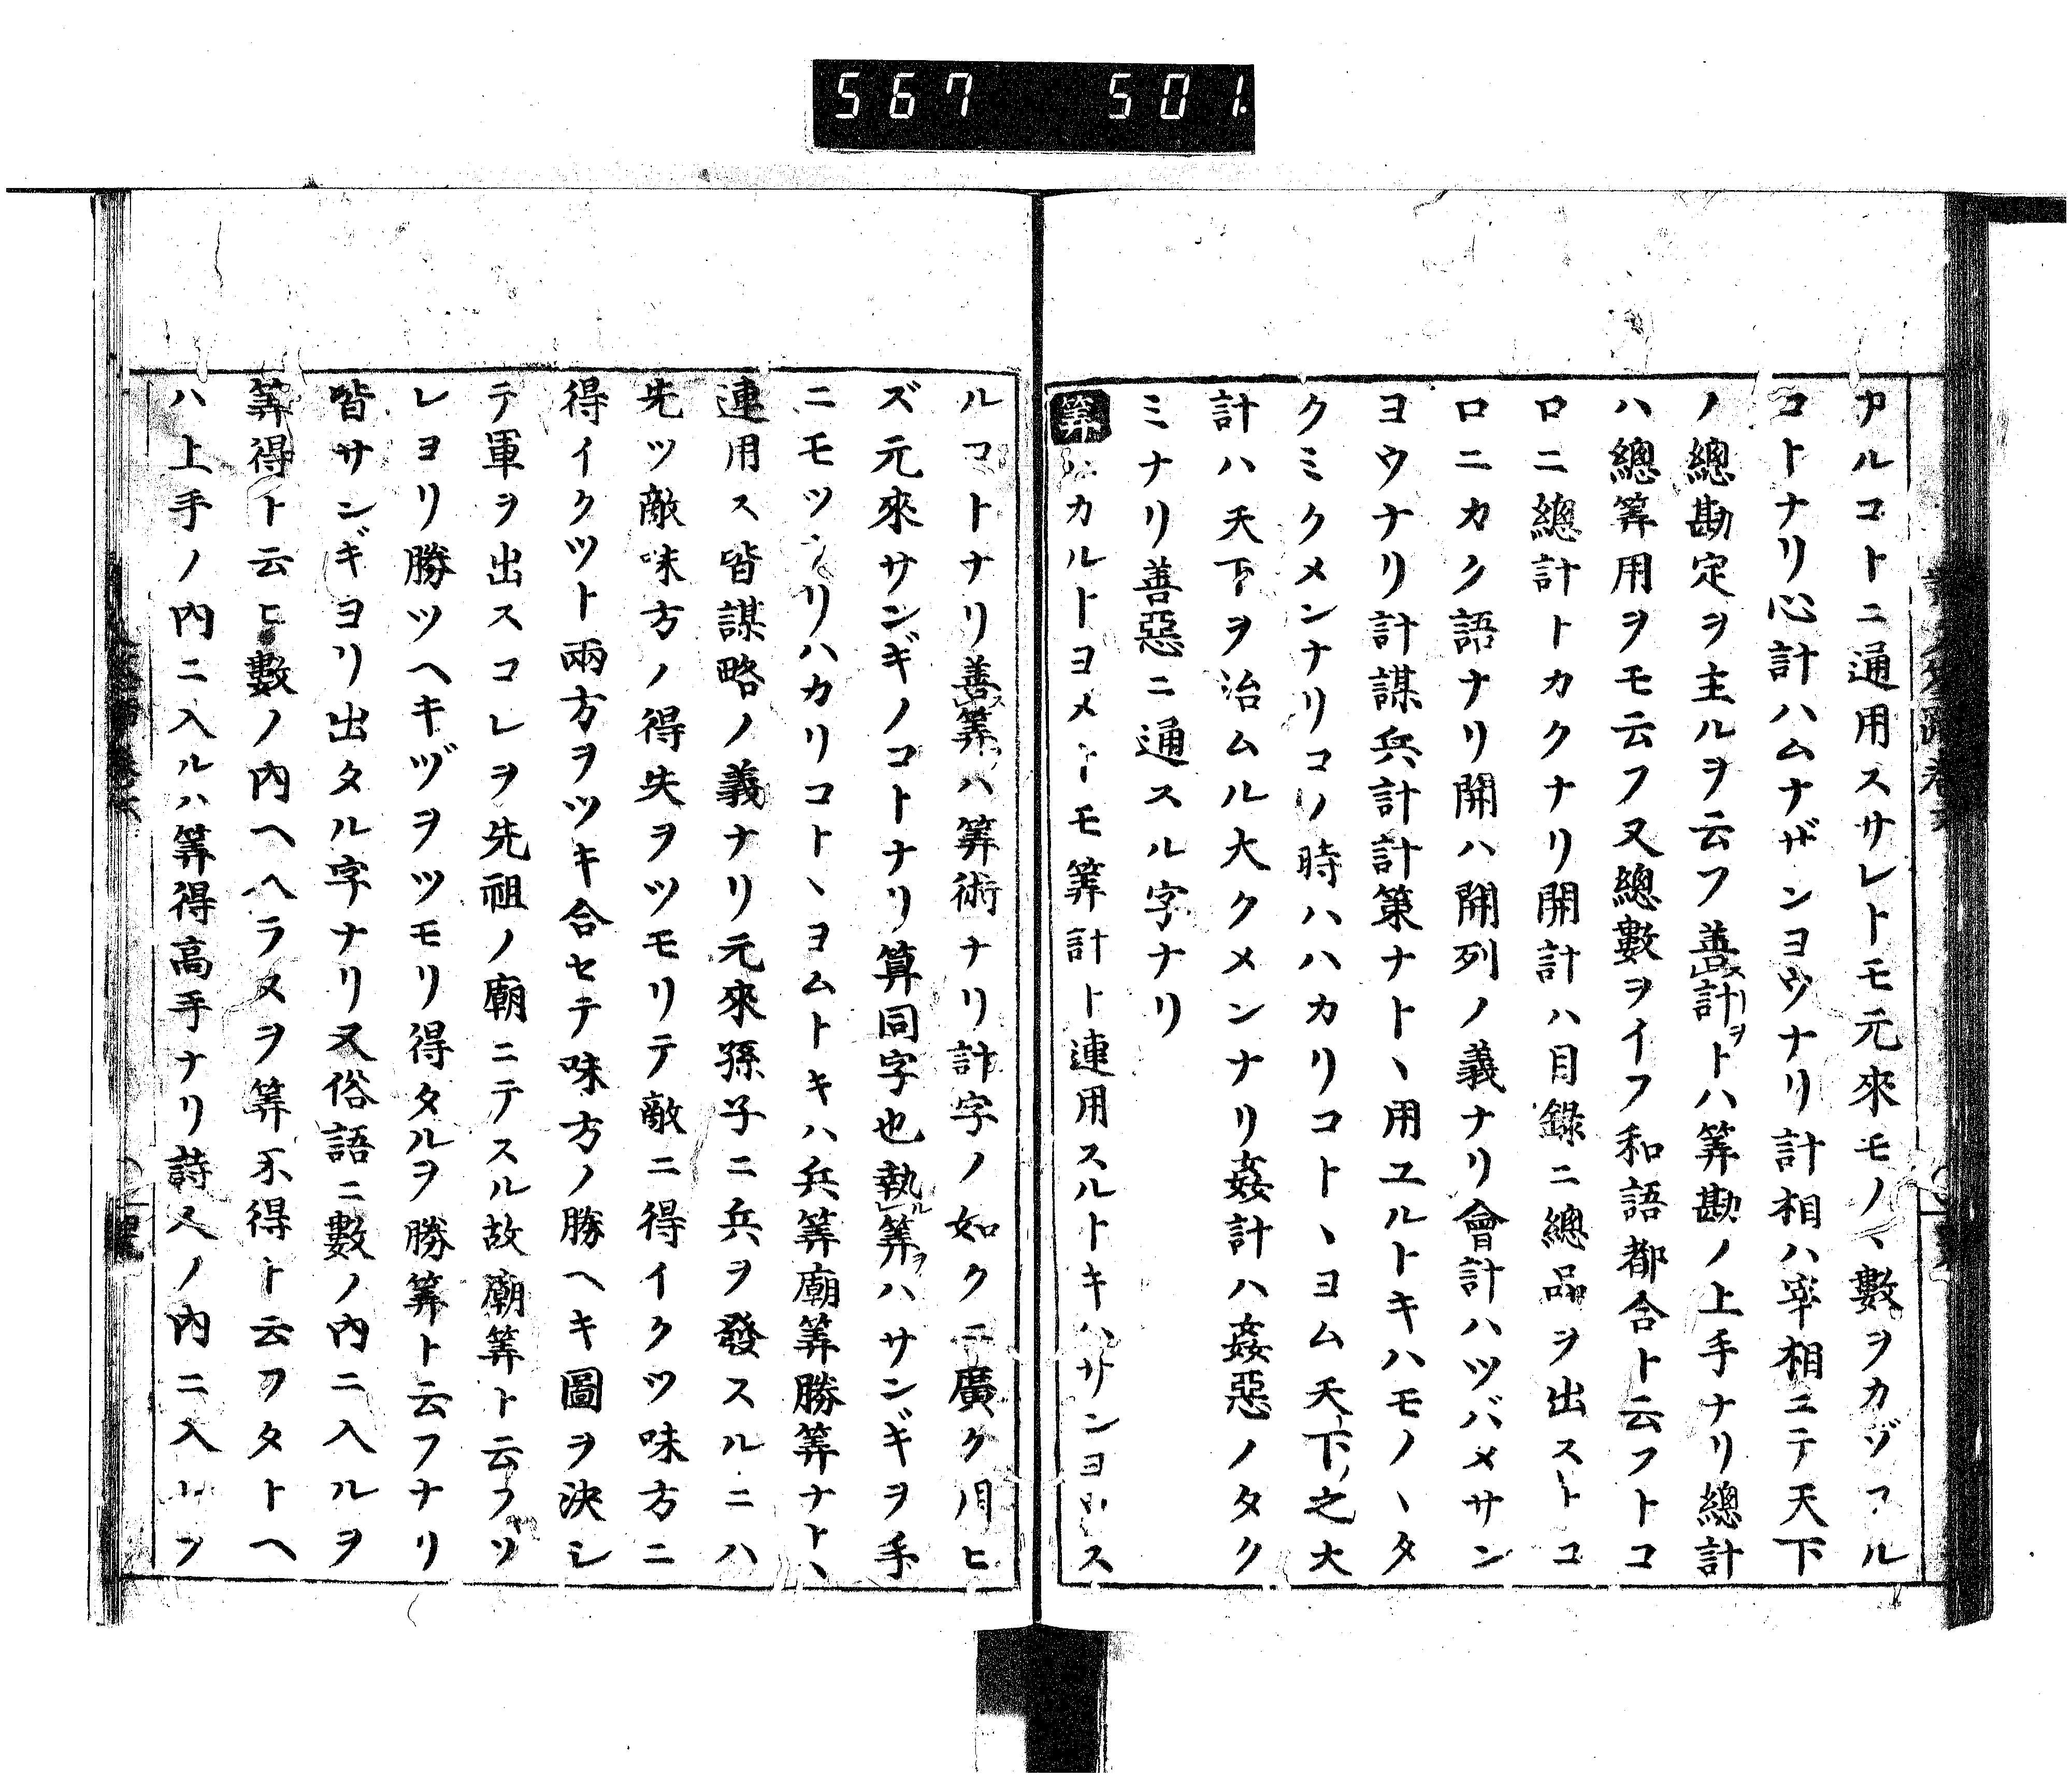 567 501
アルコトニ通用スサレトモ元來モノヽ數ヲカゾフル
コトナリ心計ハムナザンヨウナリ計相ハ宰相ニテ天下
ノ總勘定ヲ主ルヲ云フ善計トハ筭勘ノ上手ナリ總計
ハ總筭用ヲモ云フ又總數ヲイフ和語都合ト云フトコ
ロニ總計トカクナリ開計ハ目錄ニ總品ヲ出ストコ
ロニカク語ナリ開ハ開列ノ義ナリ會計ハツバメサン
ヨウナリ計謀兵計計策ナトヽ用ユルトキハモノヽタ
クミクメンナリコノ時ハハカリコトヽヨム天下之大
計ハ天下ヲ治ムル大クメンナリ姦計ハ姦惡ノタク
ミナリ善惡ニ通スル字ナリ
筭 カルトヨメトモ筭計ト連用スルトキハサンヨウス
ルコトナリ善筭ハ筭術ナリ計字ノ如クニ廣ク用ヒ
ズ元來サンギノコトナリ算同字也執筭ハサンギヲ手
ニモツナリハカリコトヽヨムトキハ兵筭廟筭勝筭ナトヽ
連用ス皆謀略ノ義ナリ元來孫子ニ兵ヲ發スルニハ
先ツ敵味方ノ得失ヲツモリテ敵ニ得イクツ味方ニ
得イクツト兩方ヲツキ合セテ味方ノ勝ヘキ圖ヲ決シ
テ軍ヲ出スコレヲ先祖ノ廟ニテスル故廟筭ト云フソ
レヨリ勝ツヘキヅヲツモリ得タルヲ勝筭ト云フナリ
皆サンギヨリ出タル字ナリ又俗語ニ數ノ內ニ入ルヲ
筭得ト云ヒ數ノ內ヘヘラヌヲ筭不得ト云フタトヘ
ハ上手ノ內ニ入ルハ筭得高手ナリ詩人ノ內ニ入ラヌ